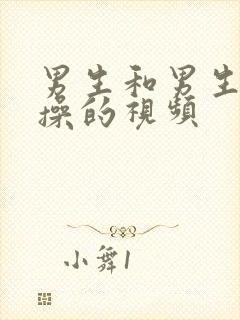 男生和男生
操的視頻
小舞1